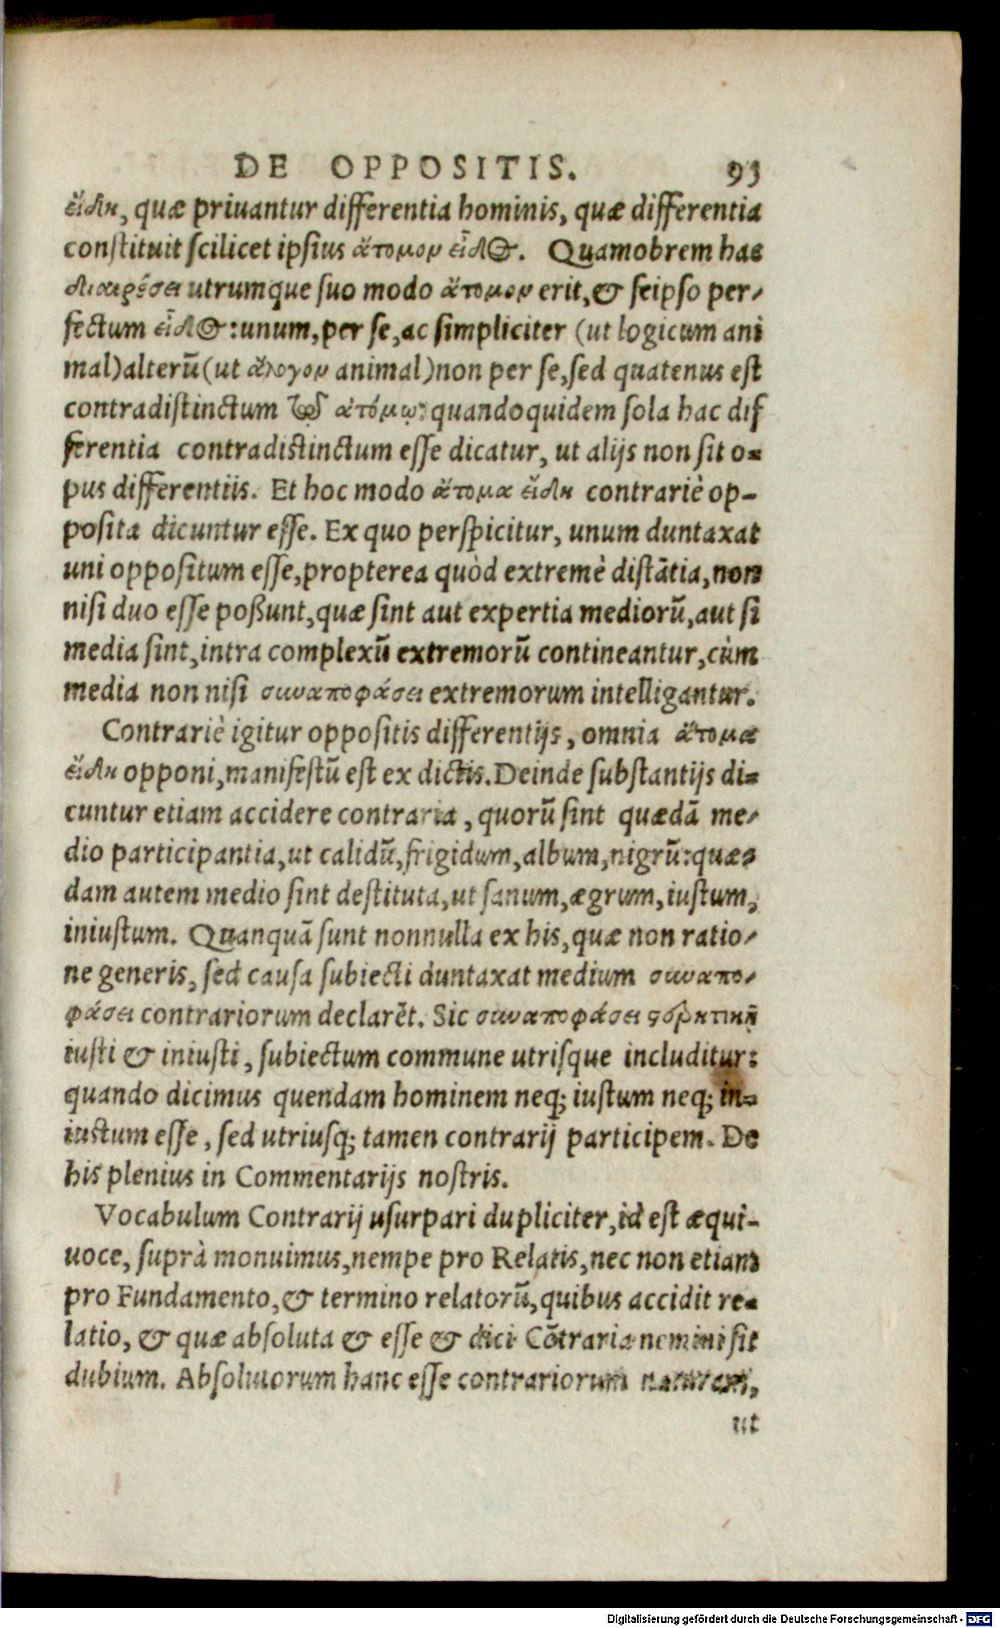 DE OPPOSITIS. 93
εἴδη, quæ priuantur differentia hominis, quæ differentia
constituit scilicet ipsius ἄτομον εἶδος. Quamobrem hac
διαιρέσει utrumque suo modo ἄτομον erit, & seipso per-
fectum εἶδος: unum, per se, ac simpliciter (ut logicum ani
mal) alterū (ut ἄλογον animal) non per se, sed quatenus est
contradistinctum τῷ ἀτόμῳ: quandoquidem sola hac dif
ferentia contradistinctum esse dicatur, ut alijs non sit o-
pus differentiis. Et hoc modo ἄτομα εἴδη contrariè op-
posita dicuntur esse. Ex quo perspicitur, unum duntaxat
uni oppositum esse, propterea quòd extremè distātia, non
nisi duo esse poßunt, quæ sint aut expertia mediorū, aut si
media sint, intra complexū extremorū contineantur, cùm
media non nisi συναποφάσει extremorum intelligantur.
Contrariè igitur oppositis differentijs, omnia ἄτομα
εἴδη opponi, manifestū est ex dictis. Deinde substantijs di-
cuntur etiam accidere contraria, quorū sint quædā me-
dio participantia, ut calidū, frigidum, album, nigrū: quæ-
dam autem medio sint destituta, ut sanum, ægrum, iustum,
iniustum. Quanquā sunt nonnulla ex his, quæ non ratio-
ne generis, sed causa subiecti duntaxat medium συναπο-
φάσει contrariorum declarēt. Sic συναποφάσει στερητικῇ
iusti & iniusti, subiectum commune utrisque includitur:
quando dicimus quendam hominem neq; iustum neq; in-
iuctum esse, sed utriusq; tamen contrarij participem. De
his plenius in Commentarijs nostris.
Vocabulum Contrarij usurpari dupliciter, id est æqui-
uoce, suprà monuimus, nempe pro Relatis, nec non etiam
pro Fundamento, & termino relatorū, quibus accidit re-
latio, & quæ absoluta & esse & dici Cōtraria nemini sit
dubium. Absolutorum hanc esse contrariorum naturam,
ut
Digitalisierung gefördert durch die Deutsche Forschungsgemeinschaft - DFG